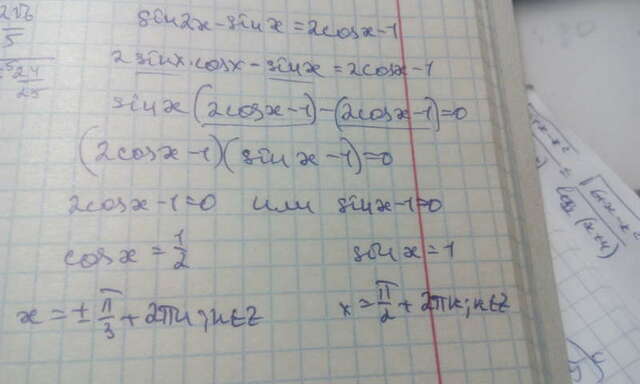 sin2x-sinx=2cosx-1
2sinx·cosx-sinx=2cosx-1
sinx(2cosx-1)-(2cosx-1)=0
(2cosx-1)(sinx-1)=0
2cosx-1=0 или sinx-1=0
cosx=1/2 sinx=1
x=±π/3+2πn;n∈Z x=π/2+2πn;n∈Z
5
24/25